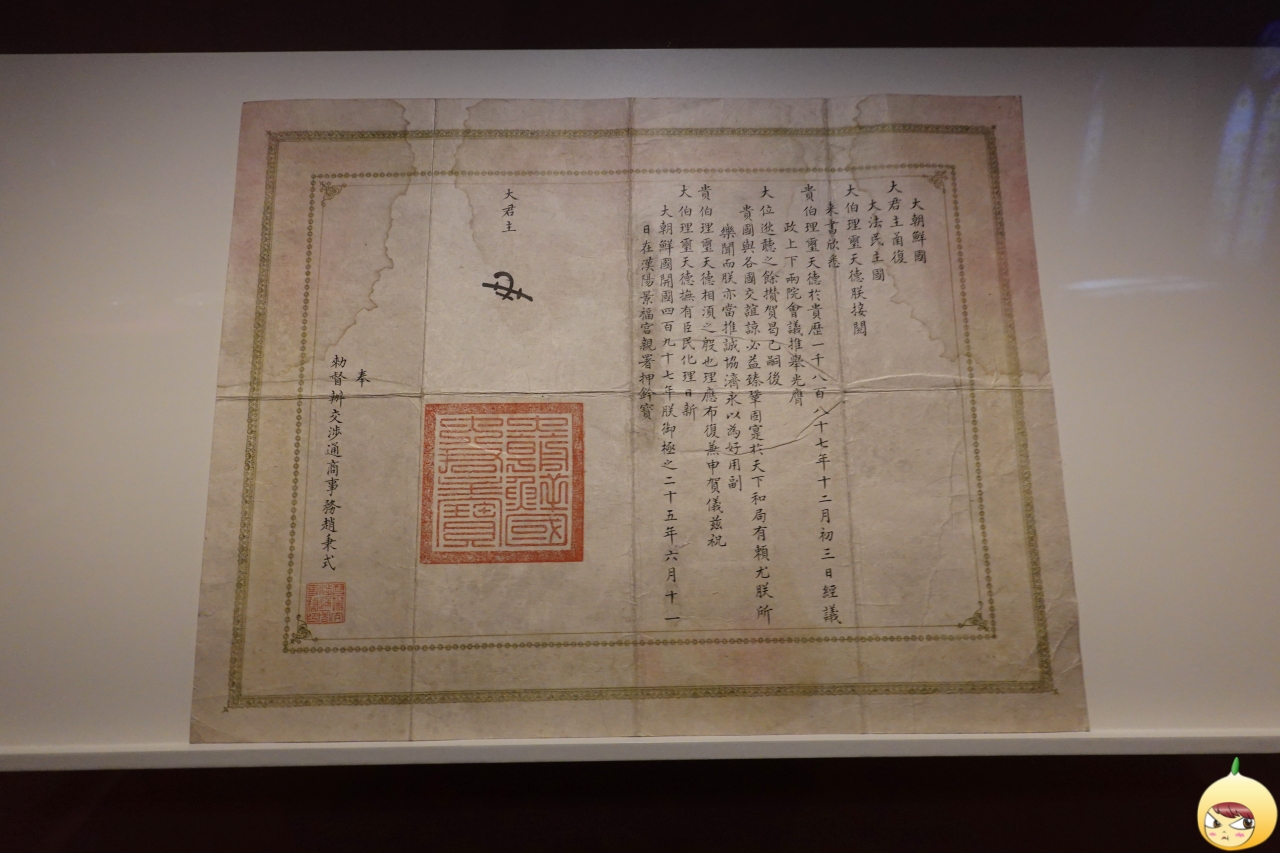 大朝鮮國
大君主圅復
大法民主國
大伯理璽天德朕接閱
来書欣悉
貴伯理璽天德於貴歷一千八百八十七年十二月初三日經議
政上下兩院會議推舉光膺
大位逖聽之餘攢賀曷已嗣後
貴國與各國交誼諒必益臻鞏固寔於天下和局有賴尤朕所
樂聞而朕亦當推誠協濟永以為好用副
貴伯理璽天德相須之殷也理應布復兼申賀儀茲祝
大伯理璽天德撫有臣民化理日新
大朝鮮國開國四百九十七年朕御極之二十五年六月十一
日在漢陽景福宮親署押鈐寶
大君主
奉
勅督辦交涉通商事務趙秉式